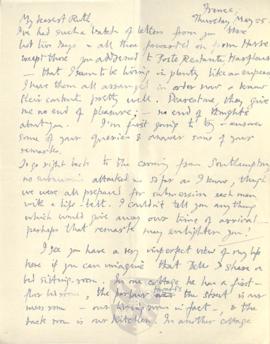 France
Thursday, May 25
My dearest Ruth
I've had such a batch of letters from you these
last two days – all those forwarded on from Havre
except those you addressed to Poste Restante Harfleur
– that I seem to be living in plenty like an
I have them all arranged in order now & know
their contents pretty well. Dearest one, they give
me no end of pleasure; – no end of thoughts
about you. I'm just going to try & answer
some of your queries & answer some of your
remarks.
To go right back to the coming from Southampton,
no submarine attacked us so far as I know, though
we were all prepared for submersion each man
with a life-belt. I couldn't tell you anything
which would give away our time of arrival –
perhaps that remark may enlighten you!
I see you have a very imperfect view of my life
here if you can imagine that I share a
bed sitting-room. In one cottage he has a first-
floor bedroom, the parlour the street is our
mess room – our living room in fact –, & the
back room is our kitchen. In another cottage